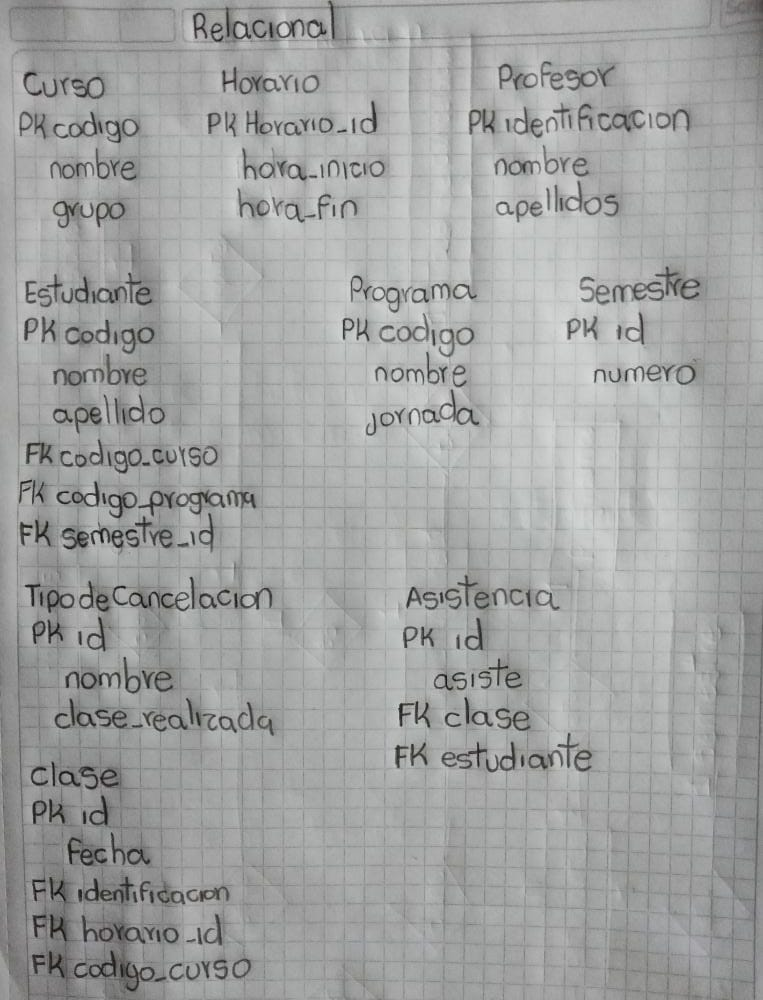 Relacional
Curso
PK codigo
nombre
grupo
Horario
PK Horario_id
hora_inicio
hora_fin
Profesor
PK identificacion
nombre
apellidos
Estudiante
PK codigo
nombre
apellido
FK codigo_curso
FK codigo_programa
FK semestre_id
Programa
PK codigo
nombre
jornada
Semestre
PK id
numero
Tipo de Cancelacion
PK id
nombre
clase_realizada
Asistencia
PK id
asiste
FK clase
FK estudiante
clase
PK id
fecha
FK identificacion
FK horario_id
FK codigo_curso